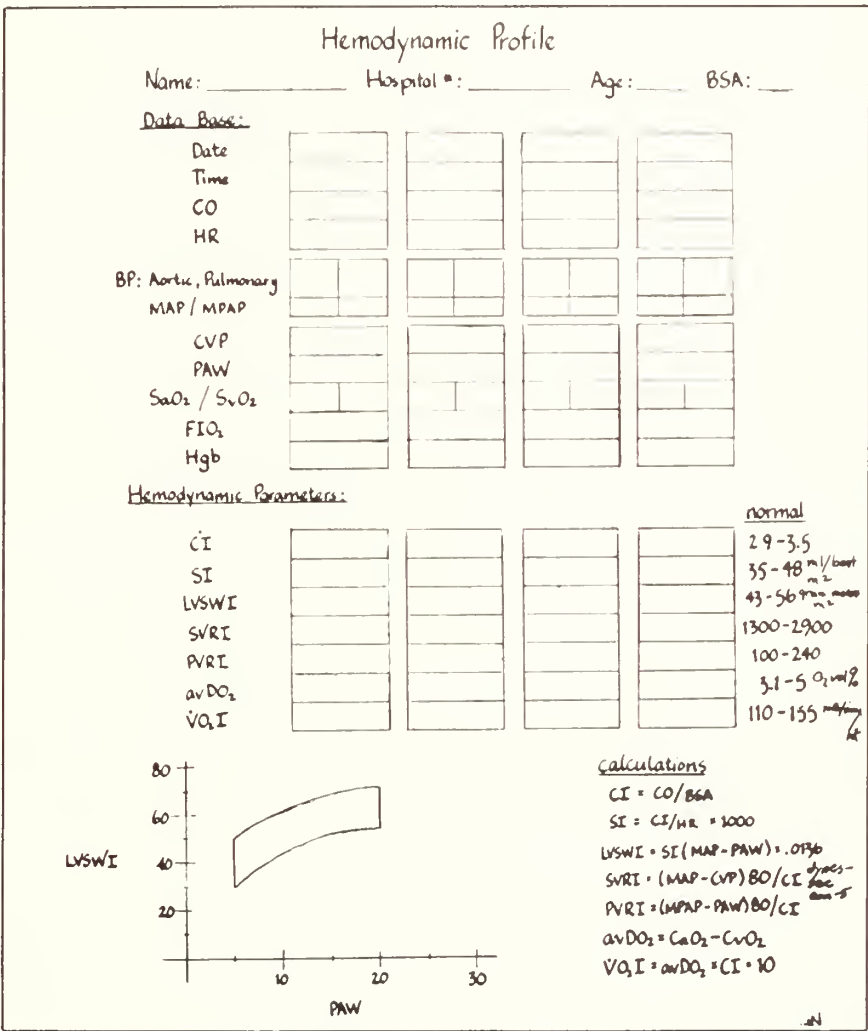 Hemodynamic Profile
Name: Hospital #: Age: BSA:
Data Base:
Date
Time
CO
HR
BP: Aortic, Pulmonary
MAP / MPAP
CVP
PAW
SaO₂ / SvO₂
FIO₂
Hgb
Hemodynamic Parameters:
normal
CI 2.9-3.5
SI 35-48 ml/beat
m2
LVSWI 43-56
m2
SVRI 1300-2900
PVRI 100-240
avDO₂ 3.1-5 O₂ vol%
V̇O₂I 110-155
80
60
40
20
LVSWI
10 20 30
PAW
Calculations
CI = CO/BSA
SI = CI/HR × 1000
LVSWI = SI (MAP-PAW) × .0136
SVRI = (MAP-CVP) 80/CI dynes-
sec
cm-5
PVRI = (MPAP-PAW) 80/CI
avDO₂ = CaO₂ - CvO₂
V̇O₂I = avDO₂ × CI × 10